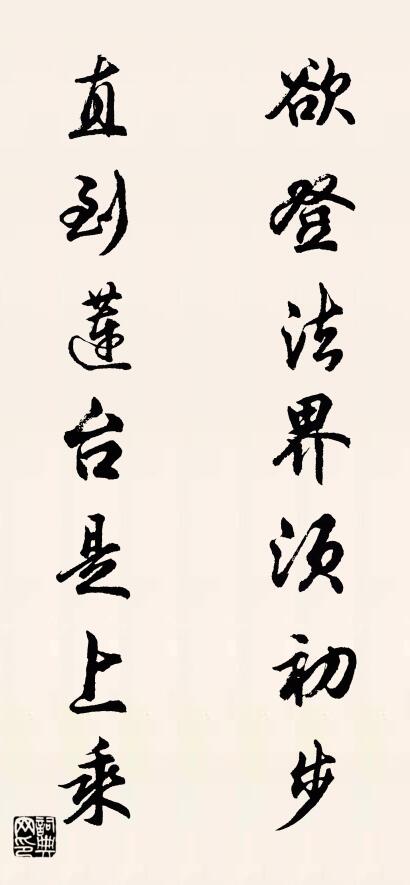 欲登法界须初步
直到莲台是上乘
詞典网印